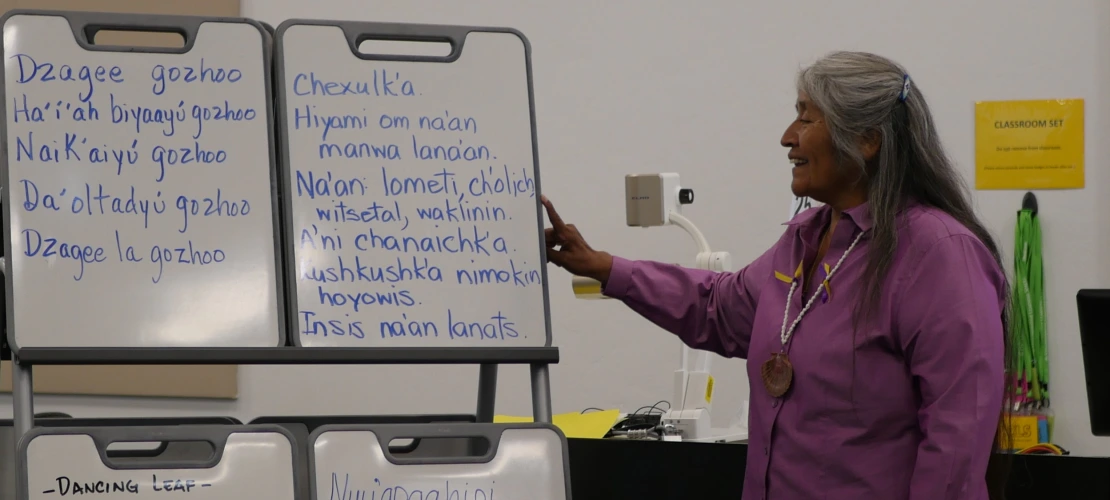 Dzagee gozhoo
Ha'i'áh biyaayú gozhoo
NaiK'aiyú gozhoo
Da'oltadyú gozhoo
Dzagee la gozhoo
Chexulk'a.
Hiyami om na'an
manwa lana'an.
Na'an: lometi, ch'olich,
witsetal, waklinin.
A'ni chanaichk'a.
kushkushk'a nimokin
hoyowis.
Insis na'an lanats.
-DANCING LEAF-
CLASSROOM SET